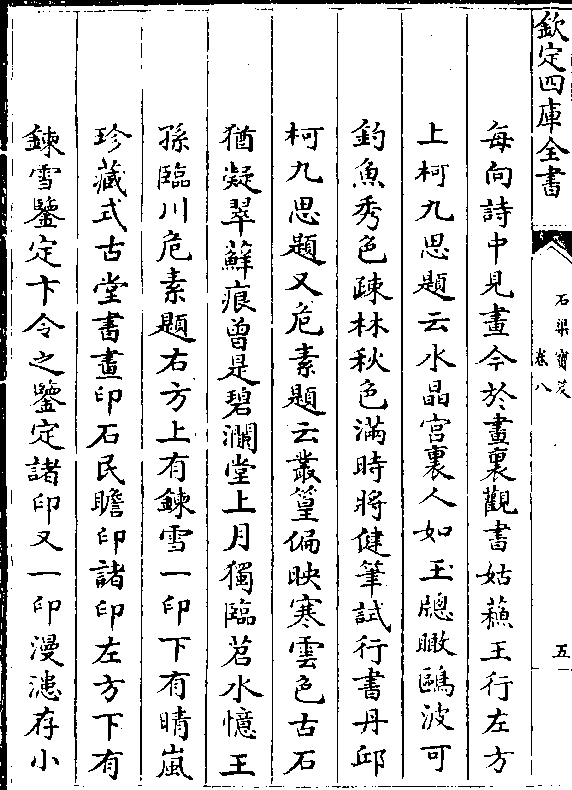 欽定四庫全書
石渠寶笈
卷八
五
每向詩中見畫今於畫裏觀書姑蘓王行左方
上柯九思題云水晶宫裏人如玉牕瞰鷗波可
釣魚秀色疎林秋色滿時將健筆試行書丹邱
柯九思題又危素題云叢篁偏映寒雲色古石
猶凝翠蘚痕曾是碧瀾堂上月獨臨苕水憶王
孫臨川危素題右方上有鍊雪一印下有晴嵐
珍藏式古堂書畫印石民瞻印諸印左方下有
鍊雪鑒定卞令之鑒定諸印又一印漫漶存小